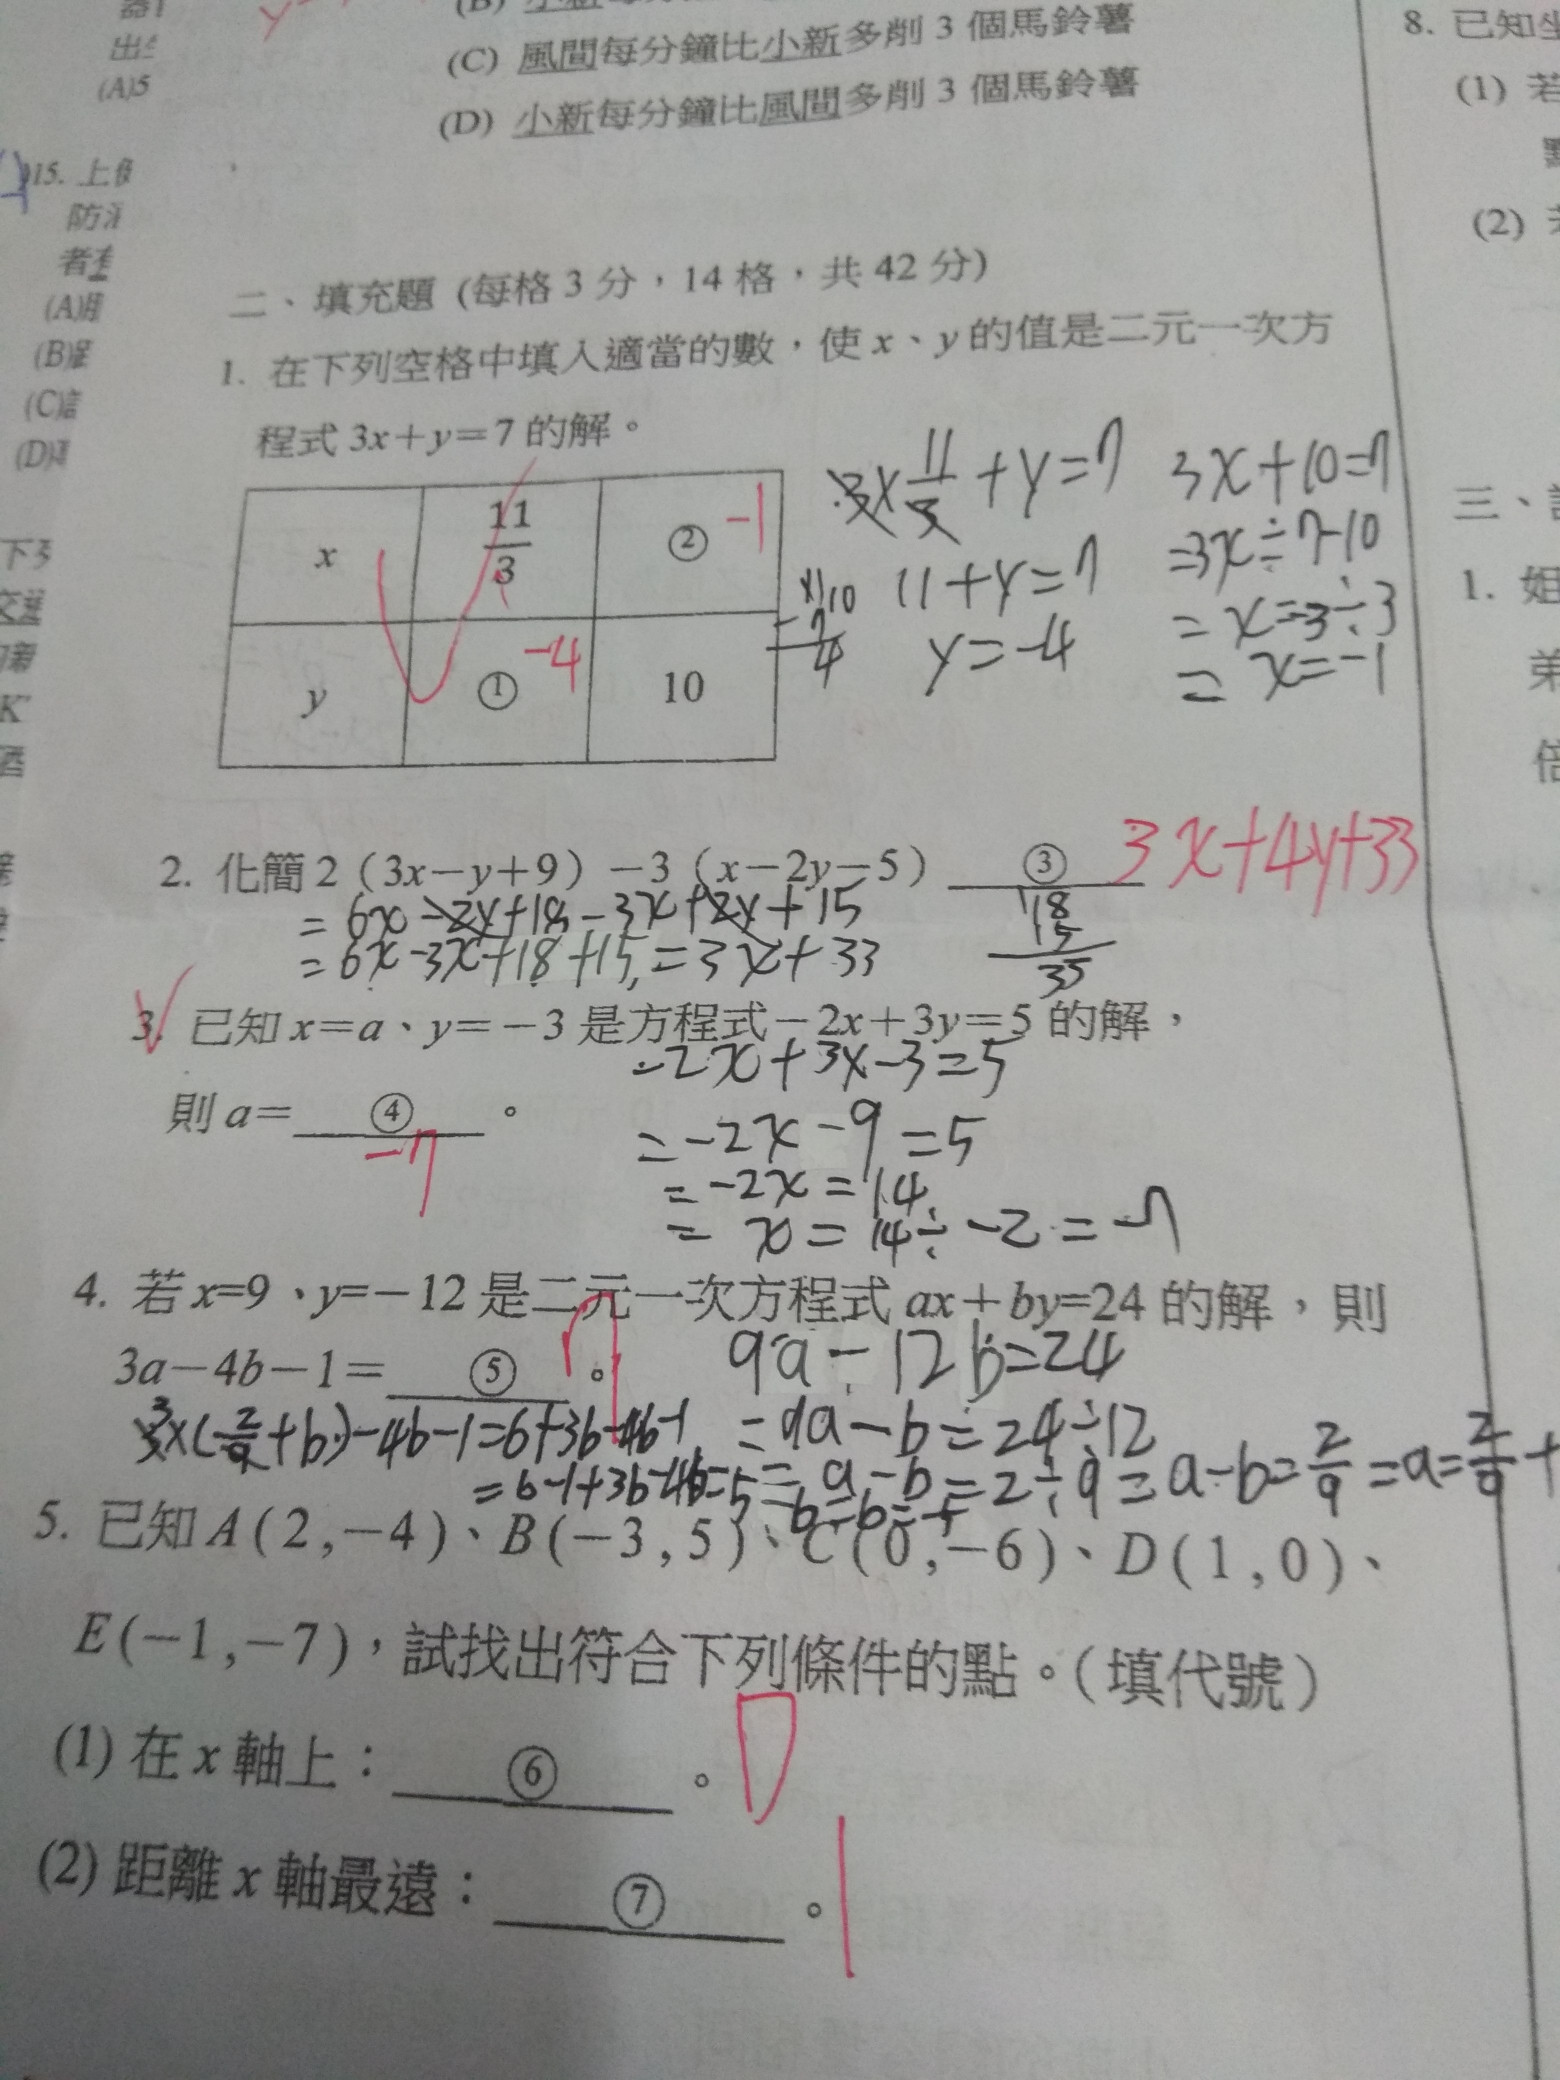 (C) 風間每分鐘比小新多削 3 個馬鈴薯
(D) 小新每分鐘比風間多削 3 個馬鈴薯
二、填充題 (每格 3 分，14 格，共 42 分)
1. 在下列空格中填入適當的數，使 x、y 的值是二元一次方
程式 3x+y=7 的解。
x 11/3 ② -1
y ① -4 10
3×11/3+y=7
11+y=7
y=-4
3x+10=7
=3x=7-10
=x=-3÷3
=x=-1
2. 化簡 2（3x－y＋9）－3（x－2y－5） ③ 3x+4y+33
=6x-2y+18-3x+2y+15
=6x-3x+18+15=3x+33
18
15
35
3. 已知 x＝a、y＝－3 是方程式－2x＋3y＝5 的解，
則 a＝ ④ 。
-7
-2x+3×-3=5
=-2x-9=5
=-2x=14
=x=14÷-2=-7
4. 若 x=9、y=－12 是二元一次方程式 ax＋by=24 的解，則
3a－4b－1＝ ⑤ 。 7
9a-12b=24
=9a-b=24÷12
=a-b=2÷9=a-b=2/9=a=2/9+
3×(2/9+b)-4b-1=6+3b-4b-1
=6-1+3b-4b=5
5. 已知 A(2,－4)、B(－3,5)、C(0,－6)、D(1,0)、
E(－1,－7)，試找出符合下列條件的點。(填代號)
(1) 在 x 軸上： ⑥ 。 D
(2) 距離 x 軸最遠： ⑦ 。
8. 已知坐
(1) 若
(2)
三、
1. 姐
弟
倍
15. 上
防
者
(A)
(B)
(C)
(D)